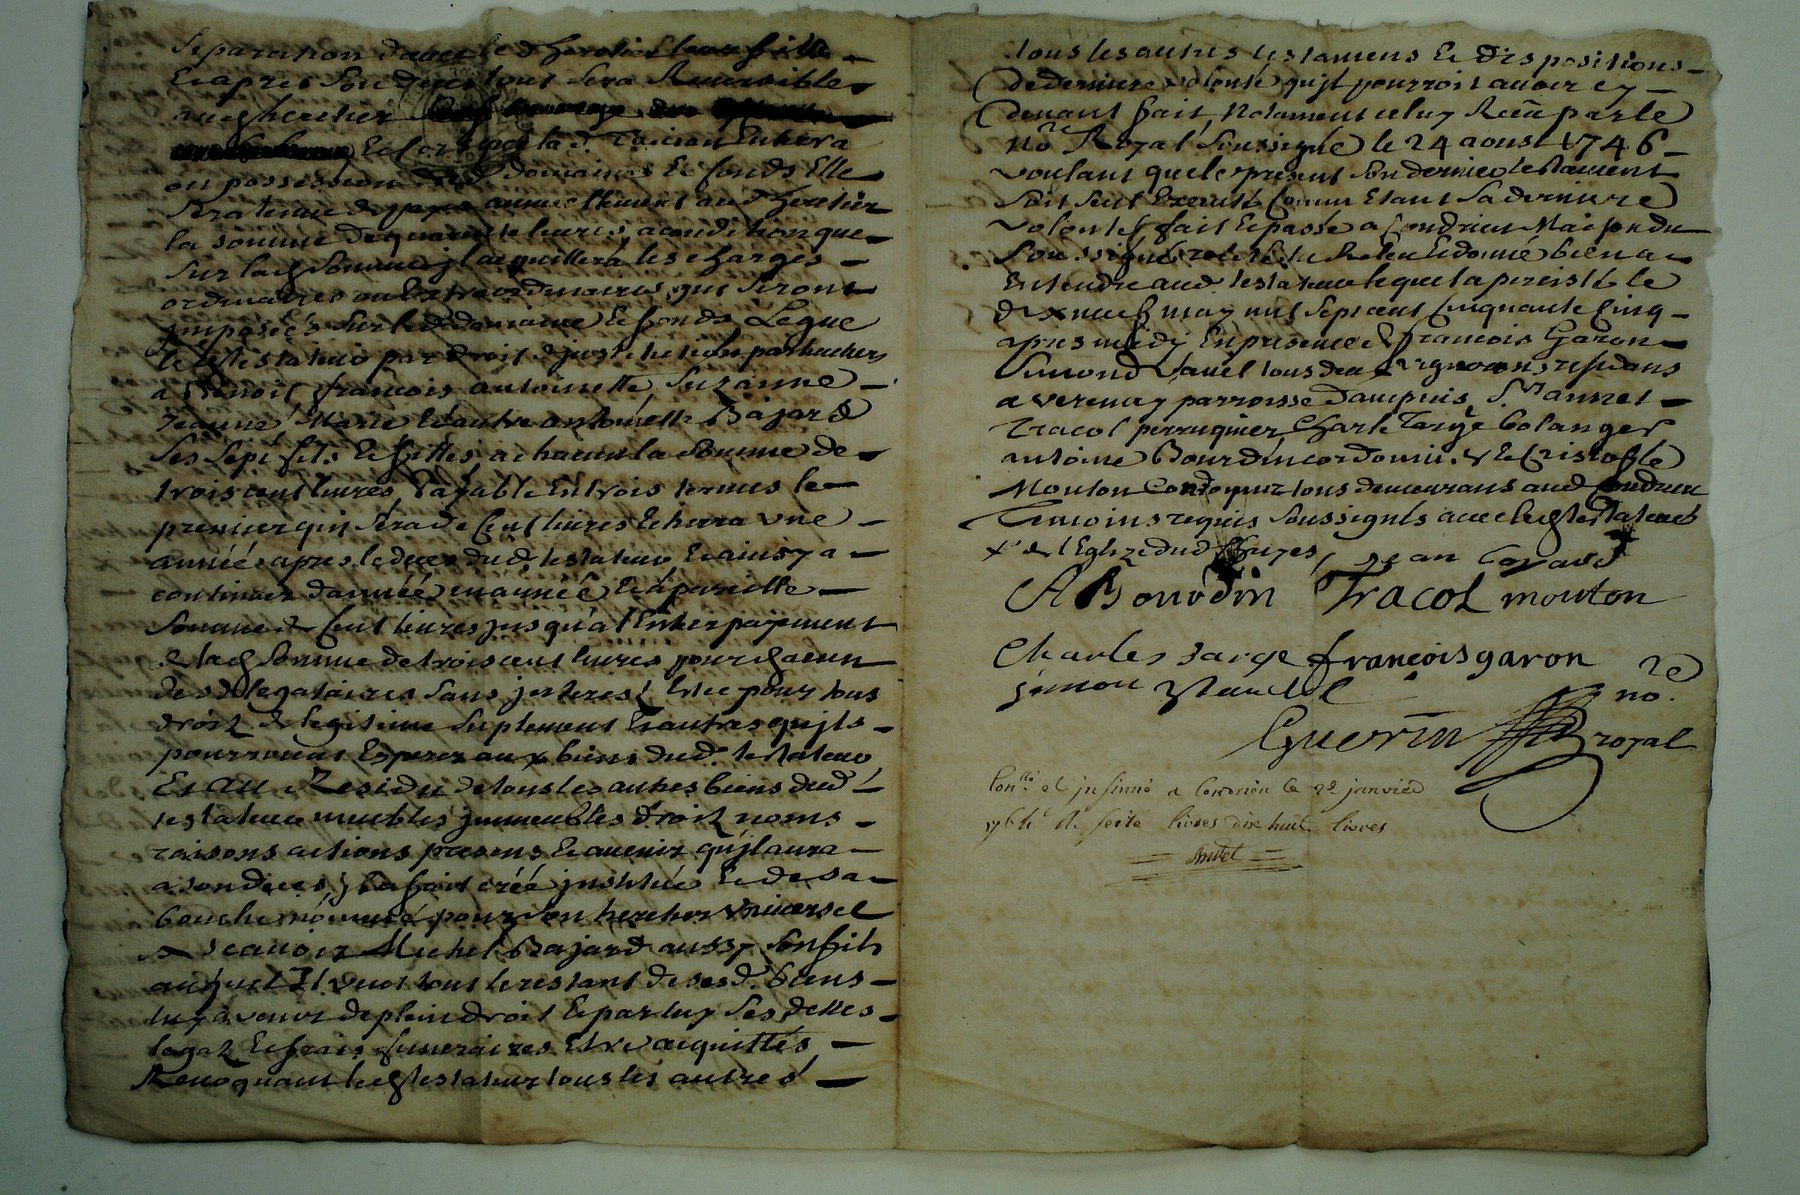 separation d'avec le d. heretier leur fille
Et apres son deces tout sera Reversible
aud. heretier
Et lors que la d. Enhera
en possession desd. domaines Et fonds Elle
sera tenue de payer annuellement aud. heretier
la somme de quarante livres a condition que
sur lad. somme jl acquittera les charges
ordinaires ou Extraordinaires qui seront
jmposées sur led. domaine Et fonds, Legue
led. testateur par droit d'justitution particuliere
a Benoit, francois antoinette, Suzanne
Jeanne, Marie Et autre antoinette Bajard
ses sept fils Et filles, a chacun la somme de
trois cent livres, payable En trois termes le
premier qui sera de Cent livres Echerra une
année apres le deces dud. testateur, Et ainsy a
continuer d'année en année Et a pareille
somme de Cent livres jusqu'a l'Entier payement
de lad. somme de trois cent livres pour chacun
desd. legataires sans jnterest, Et ce pour tous
droit de legitime suplement Et autres qu'jls
pourroient Esperer aux biens dud. testateur
Et au Residu de tous les autres biens dud.
testateur meubles jmmeubles droit noms
raisons actions presens Et avenir qu'jl aura
a son deces, jl a fait créé justitué Et de sa
bouche nommé pour son heretier universel
a scavoir Michel Bajard aussy son fils
auquel Il veut tout le restant de ses d. biens
luy avenir de plein droit Et par luy ses dettes
legat Et frais funeraires Etre acquittés
Revoquant led. testateur tous les autres
tous les autres testamens Et dispositions
de derniere volonté qu'jl pourroit avoir cy
devant fait, Notament celuy Receu par le
No.re Royal soussigné le 24 aoust 1746
voulant que le present son dernier testament
soit seul Executé Comme Etant sa derniere
volonté fait Et passé a Condrieu Maison du
soussigné Et donné bien a
Entendre aud. testateur lequel a persisté le
dixneuf may mil sept cent Cinquante Cinq
apres midy En presence de francois Garon
Simond tous deux vignerons residans
a verenay parroisse d'ampuis, S.r annet
Tracol perruquier, Charle Targe bolanger
antoine Bourdin cordonnier Et Cristofle
Mouton tous demeurans aud. Condrieu
Temoins requis soussignés avec led. testateur
de l'Eglize dud. jean
A Bourdin Tracol mouton
Charles targe françois garon
simon
Guerin no.re royal
Con.llé et jnsinué a Condrieu le 22 janvier
livres dix huit livres